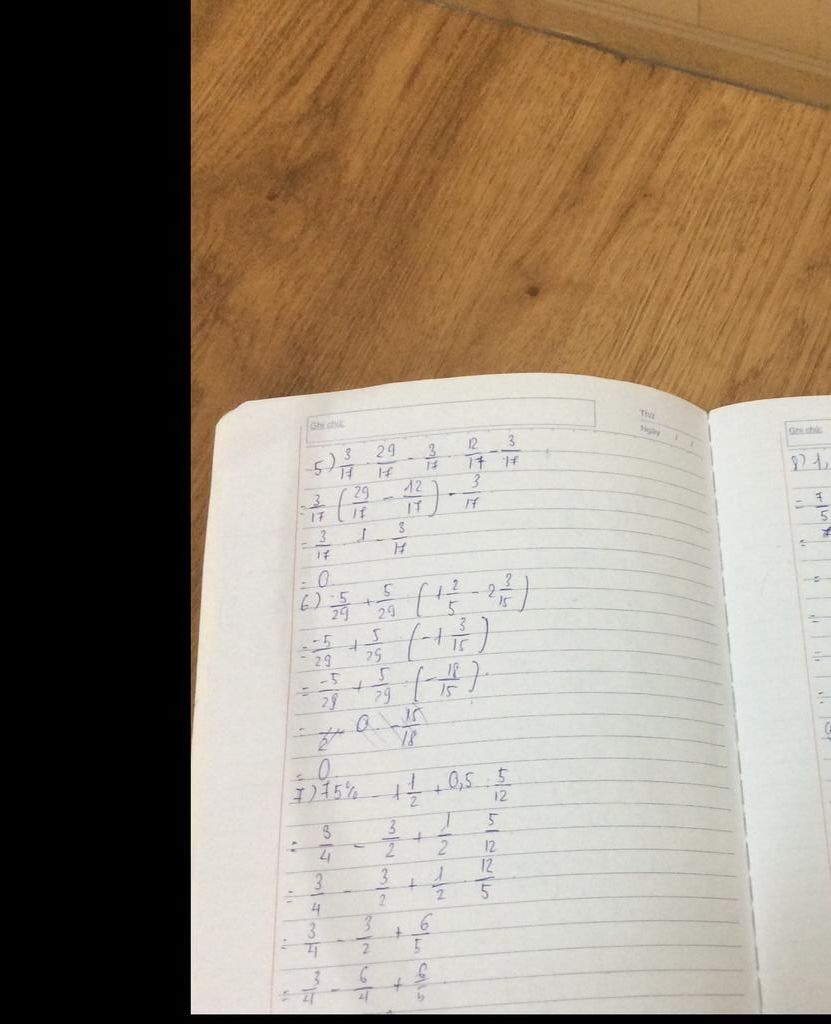 Ghi chú:
Thứ
Ngày / /
5) 3/17 · 29/17 - 3/17 · 12/17 - 3/17
= 3/17 (29/17 - 12/17) - 3/17
= 3/17 · 1 - 3/17
= 0
6) -5/29 + 5/29 · (1 2/5 - 2 3/15)
= -5/29 + 5/29 · (-1 3/15)
= -5/29 + 5/29 · (-18/15)
= 0 - 15/18
= 0
7) 75% - 1 1/2 + 0,5 : 5/12
= 3/4 - 3/2 + 1/2 : 5/12
= 3/4 - 3/2 + 1/2 · 12/5
= 3/4 - 3/2 + 6/5
= 3/4 - 6/4 + 6/5
Ghi chú:
8) 1,
= 7/5
=
=
=
=
=